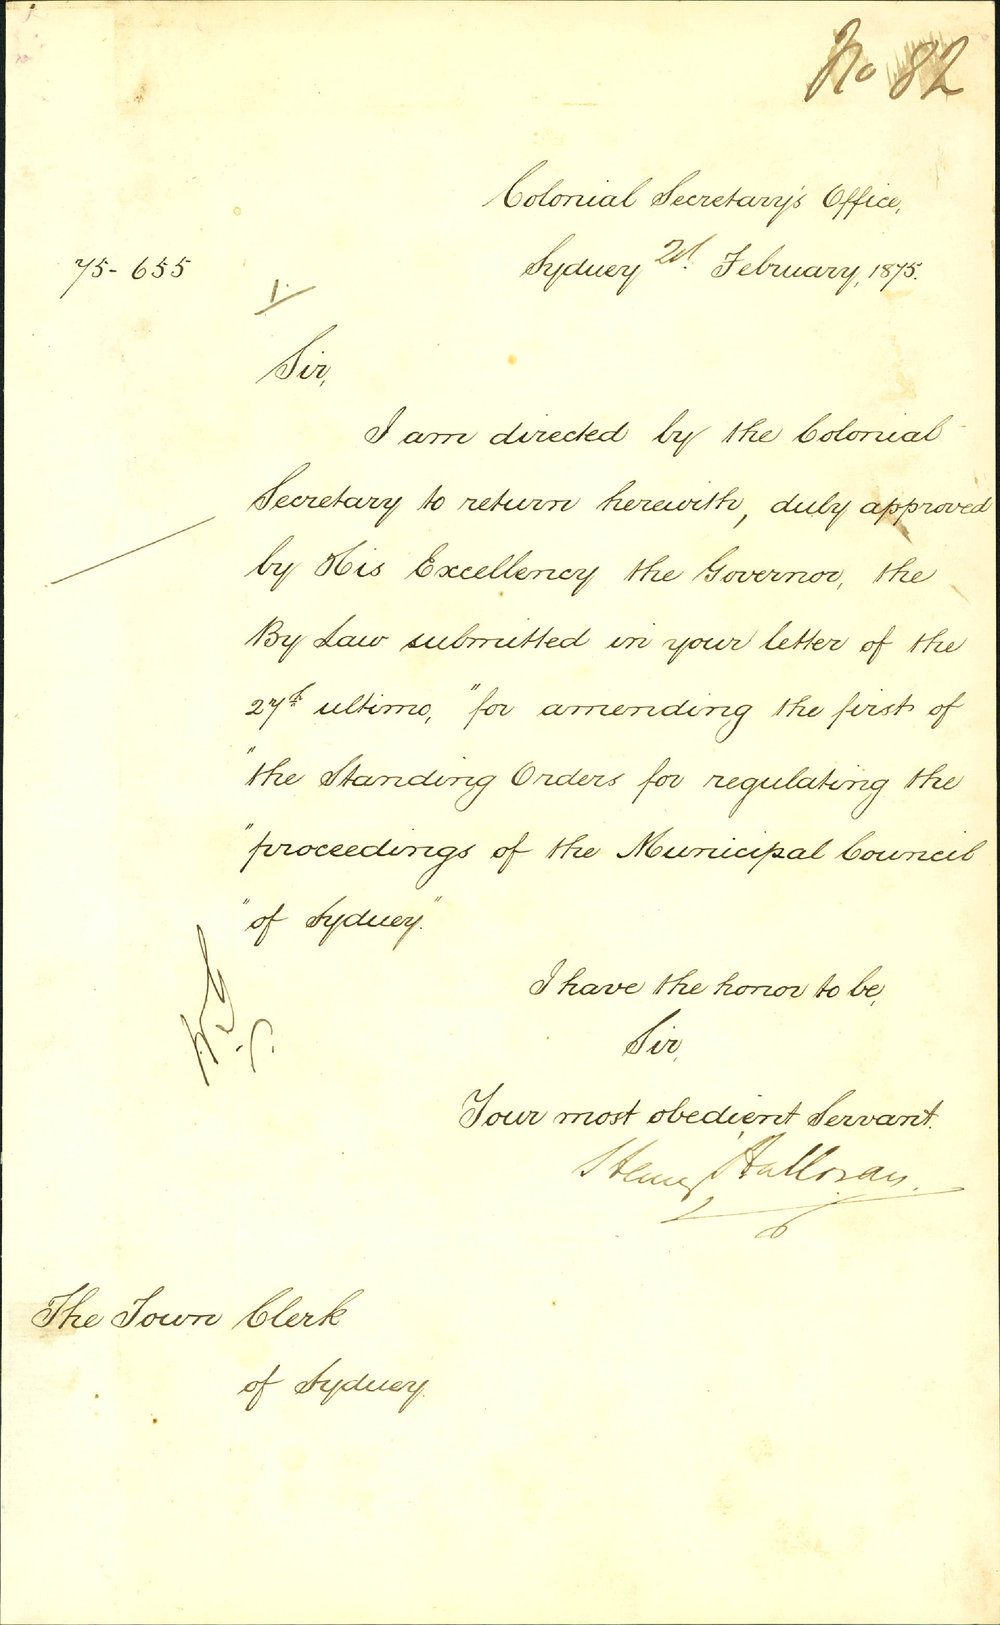 No 82
Colonial Secretary's Office,
Sydney 2d. February, 1875.
75-655
1.
Sir,
I am directed by the Colonial
Secretary to return herewith, duly approved
by His Excellency the Governor, the
By Law submitted in your letter of the
27th ultimo, "for amending the first of
"the Standing Orders for regulating the
"proceedings of the Municipal Council
"of Sydney."
I have the honor to be,
Sir,
Your most obedient Servant.
Henry Halloran.
The Town Clerk
of Sydney.